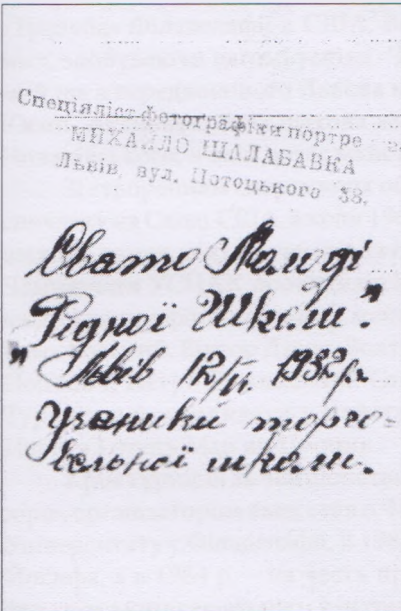 Спеціяліст фотографіки портре
МИХАЙЛО ШАЛАБАВКА
Львів, вул. Потоцького 38.
Свато Молоді
Рідної Школи."
" Львів 12/VI. 1932 р.
ученики торго-
вельної школи.